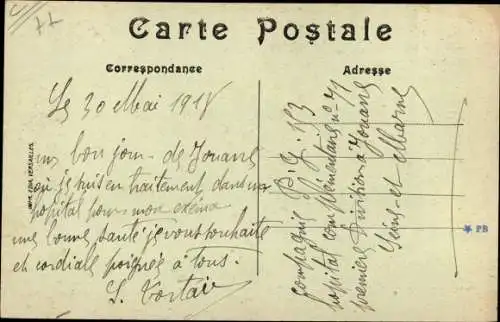 77
Carte Postale
Correspondance
Adresse
Le 30 Mai 1918
un bon jour de Jouarre
où je suis en traitement dans un
hopital pour mon exéma
une bonne santé je vous souhaite
et cordiale poignée à tous.
Compagnie P.G. 153
hopital complémentaire n° 71
premiere Division a Jouarre
Seine et Marne
IMP. EDIA VERSAILLES
PB